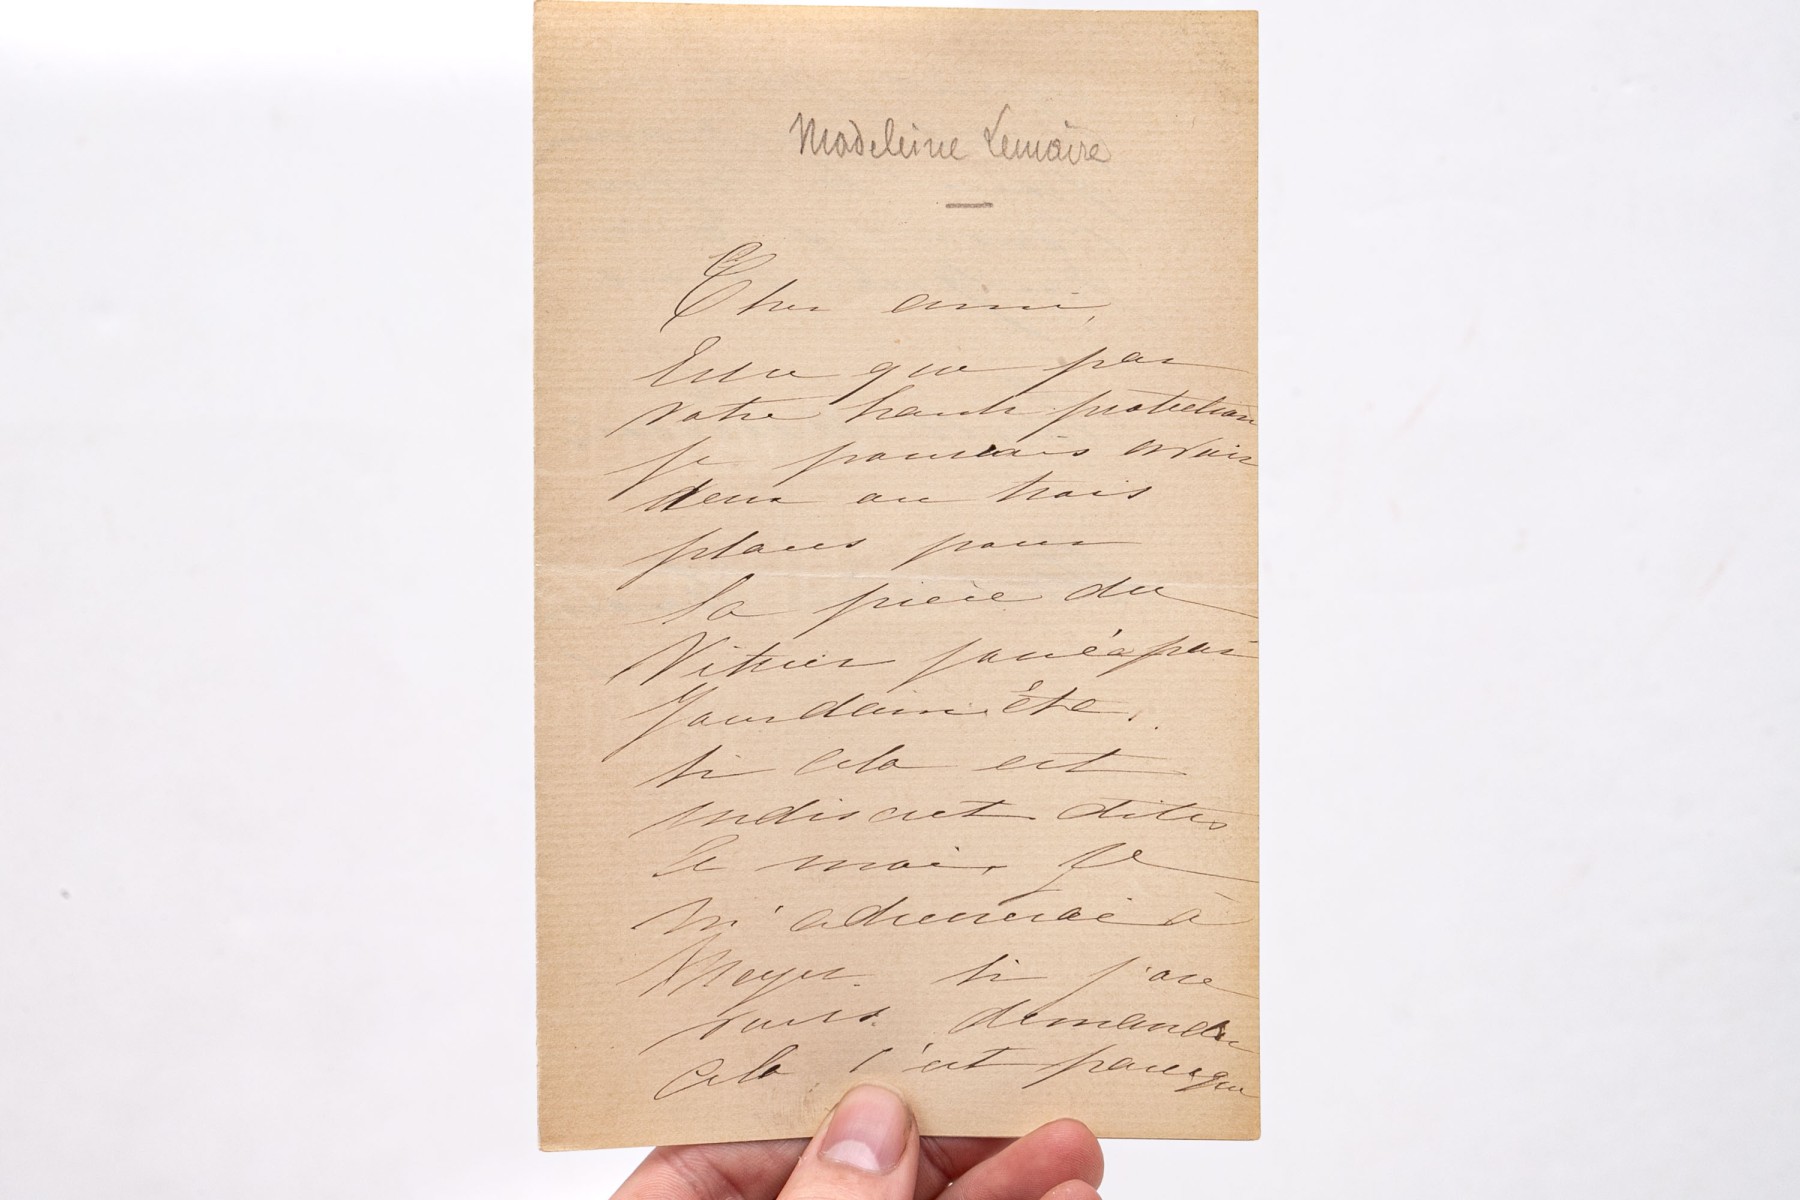 Madeleine Lemaire
Cher ami,
Esce que par
votre haute protection
je pourrais avoir
deux ou trois
places pour
la pièce du
Vitrier jouée par
Jourdain Été.
si cela est
indiscret dites
le moi, Je
m'adresserai à
Meyer. si j'ose
vous demander
cela c'est parceque